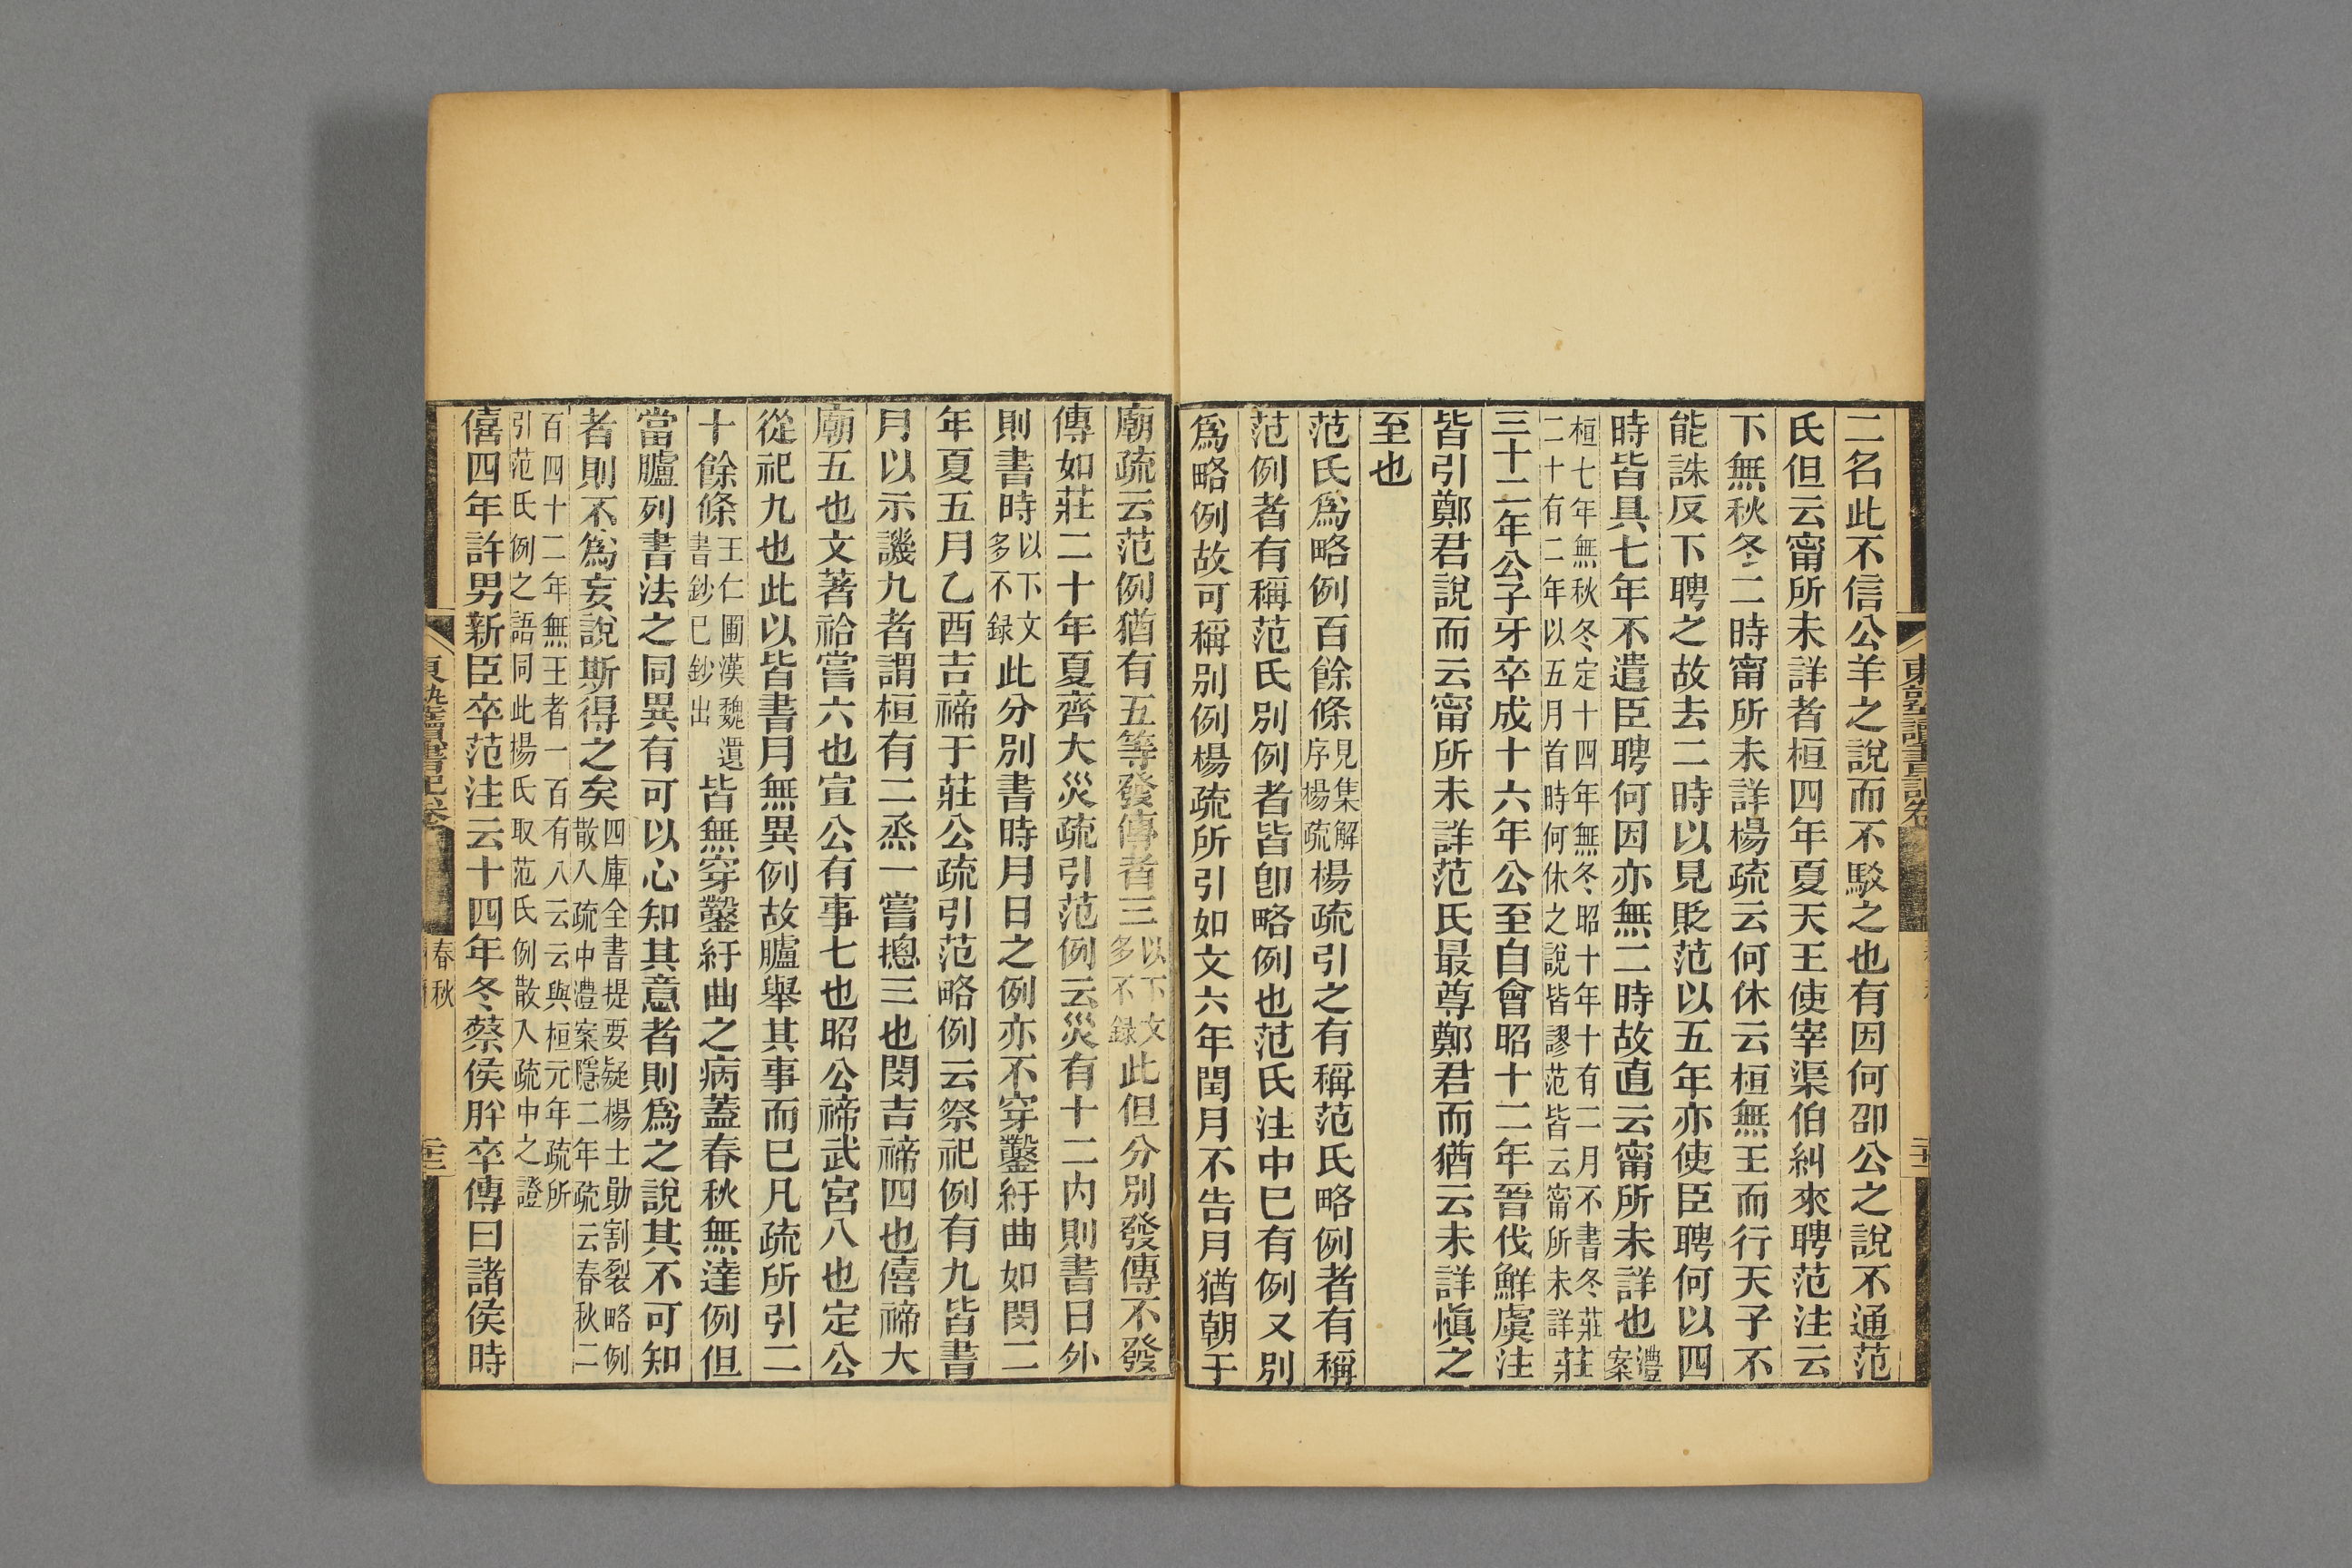 二名此不信公羊之說而不駁之也有因何邵公之說不通范
氏但云甯所未詳者桓四年夏天王使宰渠伯糾來聘范注云
下無秋冬二時甯所未詳楊疏云何休云桓無王而行天子不
能誅反下聘之故去二時以見貶范以五年亦使臣聘何以四
時皆具七年不遣臣聘何因亦無二時故直云甯所未詳也澧案
桓七年無秋冬定十四年無冬昭十年十有二月不書冬莊莊
二十有二年以五月首時何休之說皆謬范皆云甯所未詳
三十二年公子牙卒成十六年公至自會昭十二年晉伐鮮虞注
皆引鄭君說而云甯所未詳范氏最尊鄭君而猶云未詳愼之
至也
范氏爲略例百餘條見集解序楊疏楊疏引之有稱范氏略例者有稱
范例者有稱范氏別例者皆卽略例也范氏注中已有例又別
爲略例故可稱別例楊疏所引如文六年閏月不告月猶朝于
廟疏云范例猶有五等發傳者三以下文多不録此但分別發傳不發
傳如莊二十年夏齊大災疏引范例云災有十二內則書日外
則書時以下文多不録此分別書時月日之例亦不穿鑿紆曲如閔二
年夏五月乙酉吉禘于莊公疏引范略例云祭祀例有九皆書
月以示譏九者謂桓有二烝一嘗摠三也閔吉禘四也僖禘大
廟五也文著祫嘗六也宣公有事七也昭公禘武宮八也定公
從祀九也此以皆書月無異例故臚舉其事而已凡疏所引二
十餘條王仁圃漢魏遺書鈔已鈔出皆無穿鑿紆曲之病蓋春秋無達例但
當臚列書法之同異有可以心知其意者則爲之說其不可知
者則不爲妄說斯得之矣四庫全書提要疑楊士勛割裂略例散入疏中澧案隱二年疏云春秋二
百四十二年無王者一百有八云云與桓元年疏所
引范氏例之語同此楊氏取范氏例散入疏中之證
僖四年許男新臣卒范注云十四年冬蔡侯肸卒傳曰諸侯時
東塾讀書記卷
春秋